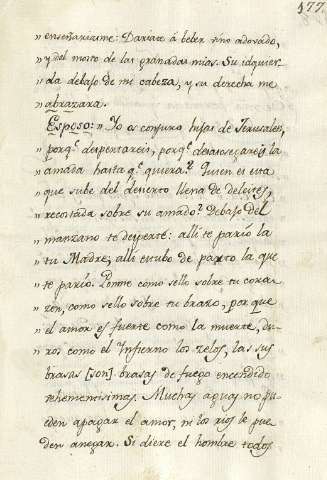 177.
" enseñariasme: Dariate á beber vino adovado,
" y del mosto de las granadas mias. Su izquier-
" da debajo de mi cabeza, y su derecha me
" abrazara.
Esposo: " Yo os conjuro hijas de Jerusalen,
" porq.e despertareis, porq.e desasosegareis la
" amada hasta q.e quiera? Quien es esta
" que sube del desierto llena de deleites,
" recostada sobre su amado? Debajo del
" manzano te desperté: alli te parió la
" tu Madre, alli estubo de parto la que
" te parió. Ponme como sello sobre tu cora-
" zon, como sello sobre tu brazo, por que
" el amor es fuerte como la muerte, du-
" ros como el Infierno los zelos, las sus
" brasas [son] brasas de fuego encendido
" vehementisimas. Muchas aguas no pu-
" eden apagar el amor, ni los rios le pue
" den anegar. Si diere el hombre todos